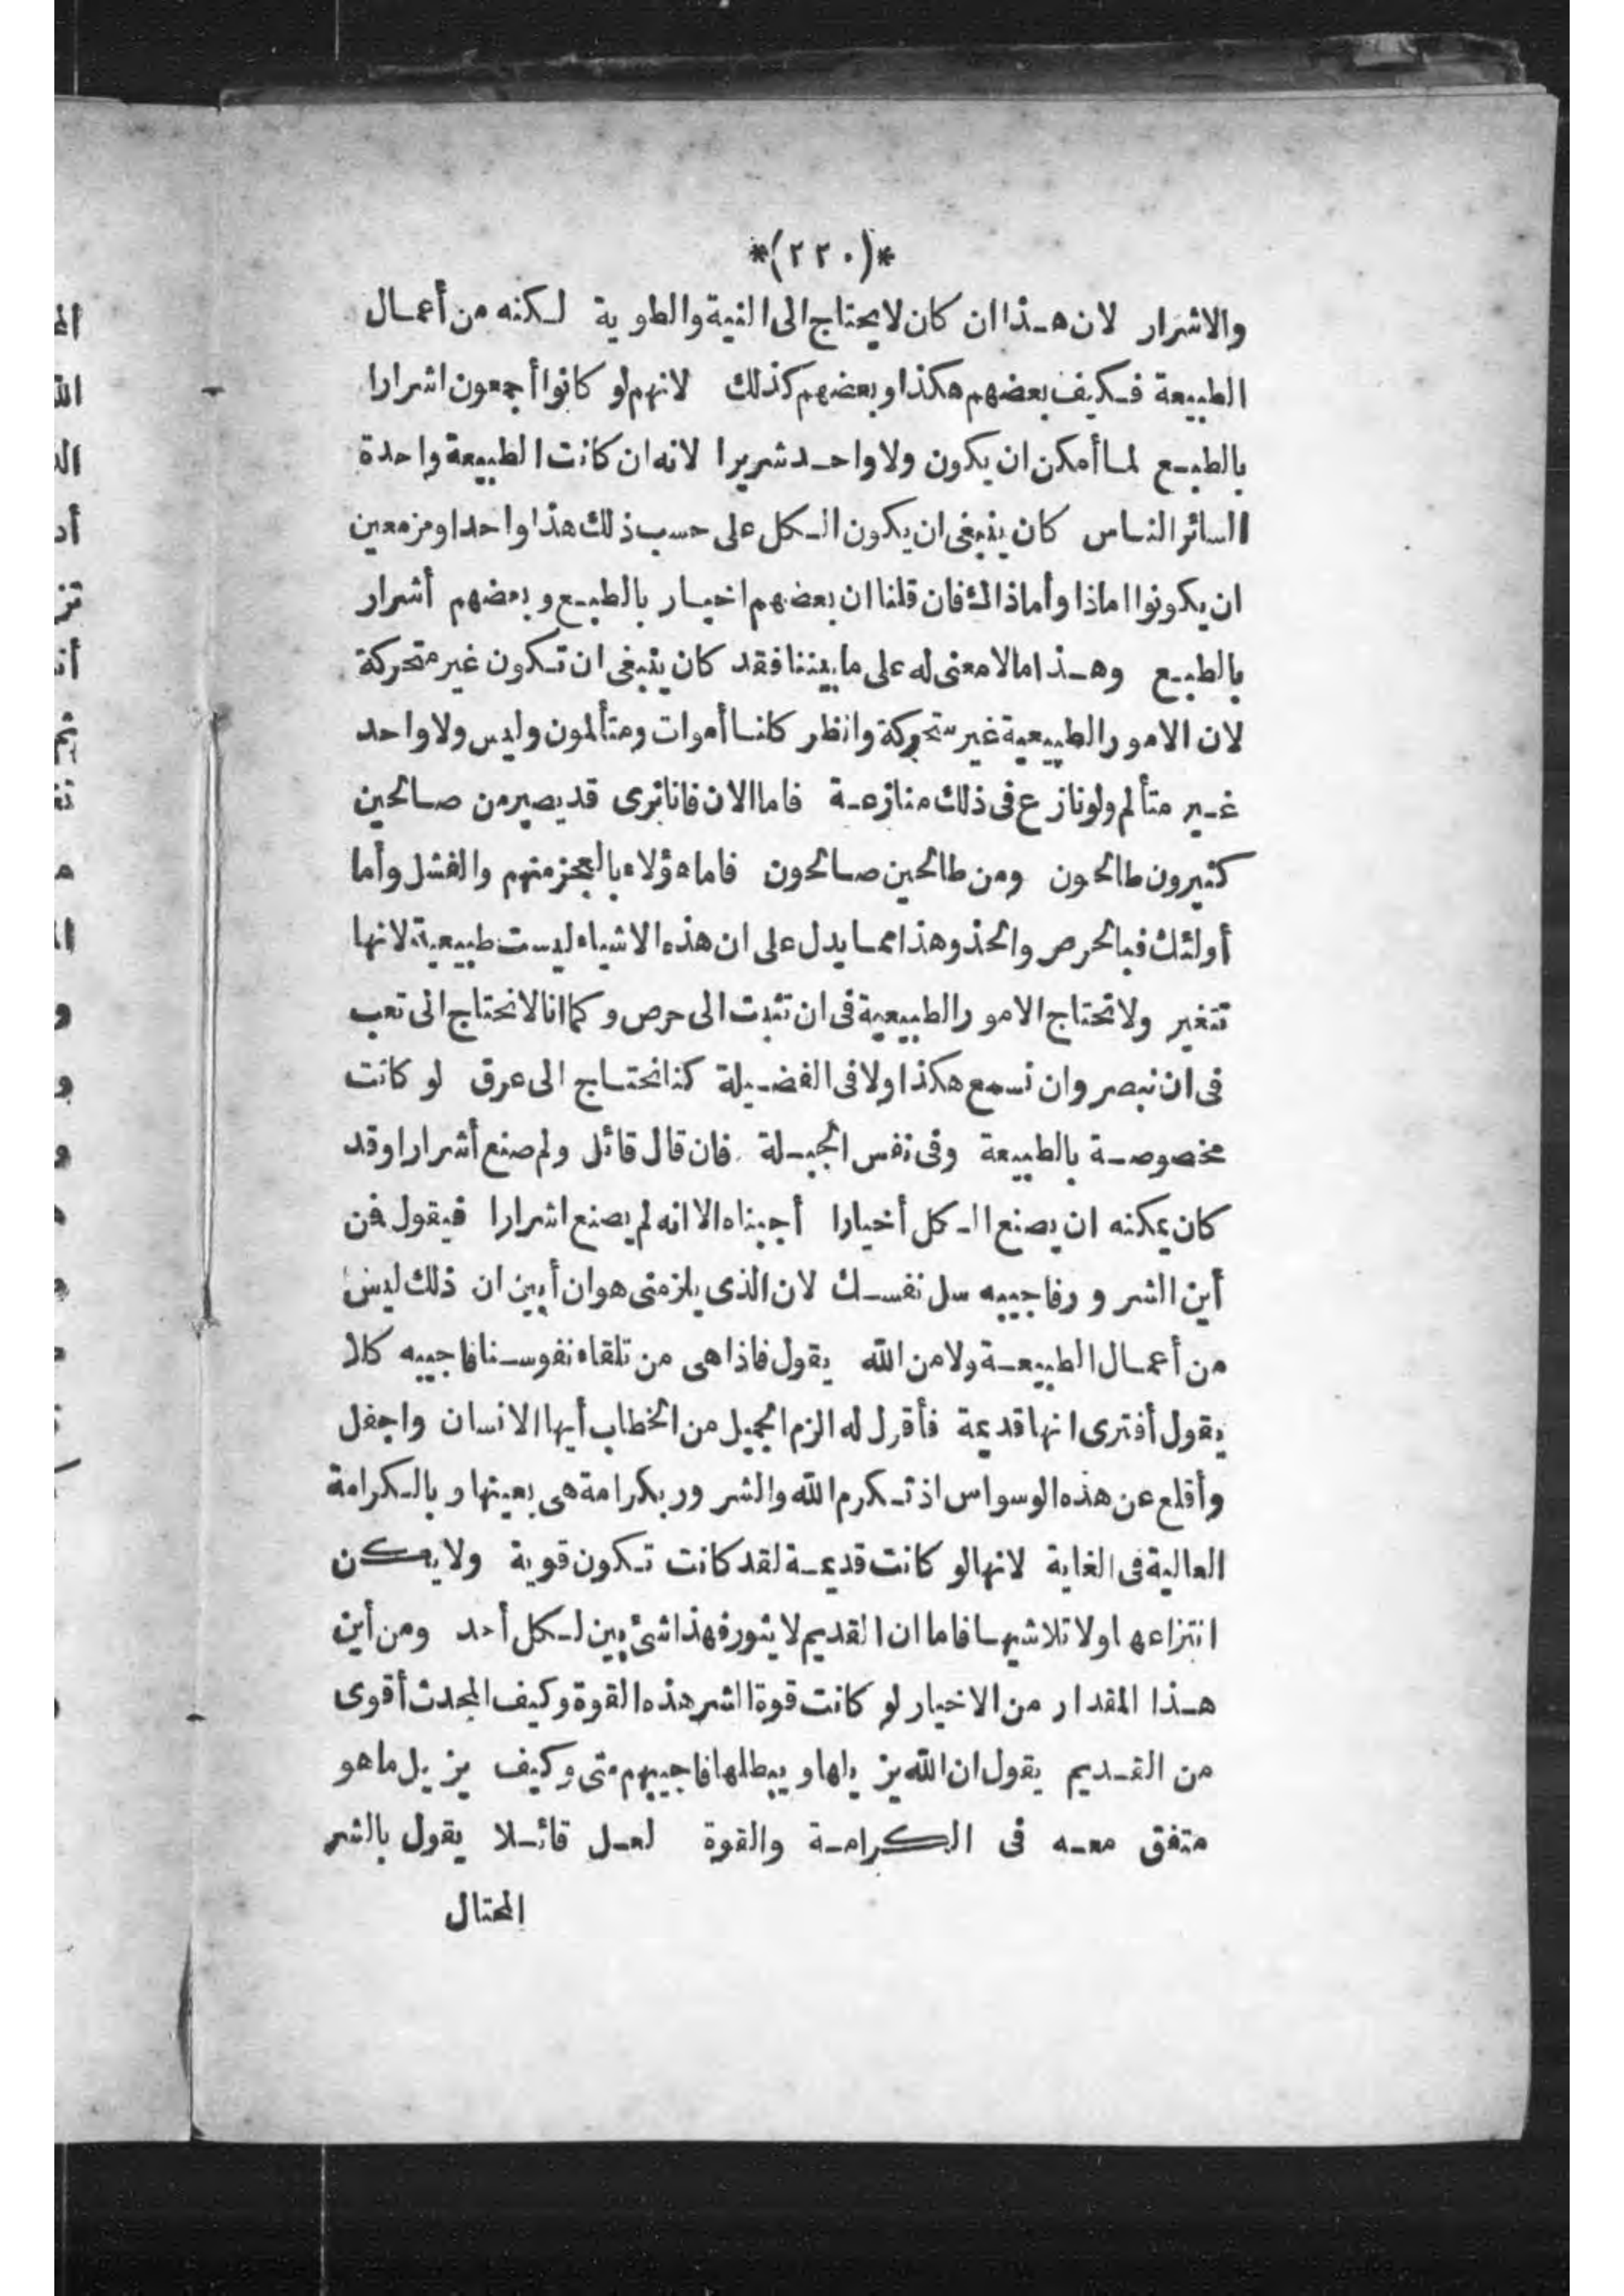 *(٢٢٠)*
والاشرار لان هـذا ان كان لا يحتاج الى النية والطوية لـكنه من أعمـال
الطبيعة فـكيف بعضهم هكذا وبعضهم كذلك لانهم لو كانوا أجمعون اشرارا
بالطبـع لمـا أمكن ان يكون ولا واحـد شريرا لانه ان كانت الطبيعة واحدة
السائر النـاس كان ينبغى ان يكون الـكل على حسب ذلك هذا واحدا ومزمعين
ان يكونوا اماذا وأماذاك فان قلنا ان بعضهم اخيـار بالطبـع وبعضهم أشرار
بالطبـع وهـذا ما لا معنى له على ما بيننا فقد كان ينبغى ان تـكون غير متحركة
لان الامور الطبيعية غير متحركة وانظر كلنـا أموات ومتألمون وليس ولا واحد
غـير متألم ولو نازع فى ذلك منازعـة فاما الان فانا نرى قد يصير من صـالحين
كثيرون طالحون ومن طالحين صـالحون فاما هؤلاء بالعجز منهم والفشل وأما
أولئك فبالحرص والحذو هذا ممـا يدل على ان هذه الاشياء ليست طبيعية لانها
تتغير ولا تحتاج الامور الطبيعية فى ان تثبت الى حرص وكما انا لا نحتاج الى تعب
فى ان نبصر وان نسمع هكذا ولا فى الفضـيلة كنا نحتـاج الى عرق لو كانت
مخصوصـة بالطبيعة وفى نفس الجبـلة فان قال قائل ولم صنع أشرارا وقد
كان يمكنه ان يصنع الـكل أخيارا أجبناه الا انه لم يصنع اشرارا فيقول فن
أين الشرور فاجيبه سل نفسـك لان الذى يلزمنى هو ان أبين ان ذلك ليس
من أعمـال الطبيعـة ولا من الله يقول فاذا هى من تلقاء نفوسـنا فاجيبه كلا
يقول أفترى انها قديمة فأقول له الزم الجميل من الخطاب أيها الانسان واجفل
وأقلع عن هذه الوسواس اذ تـكرم الله والشرور بكرامة هى بعينها وبالـكرامة
العالية فى الغاية لانها لو كانت قديمـة لقد كانت تـكون قوية ولا يمكن
انتزاعها ولا تلاشيهـا فاما ان القديم لا يثور فهذا شئ بين لـكل أحد ومن أين
هـذا المقدار من الاخيار لو كانت قوة الشر هذه القوة وكيف المحدث أقوى
من القـديم يقول ان الله يزيلها ويبطلها فاجيبهم متى وكيف يزيل ما هو
متفق معـه فى الكرامـة والقوة لعـل قائـلا يقول بالشر
المحتال